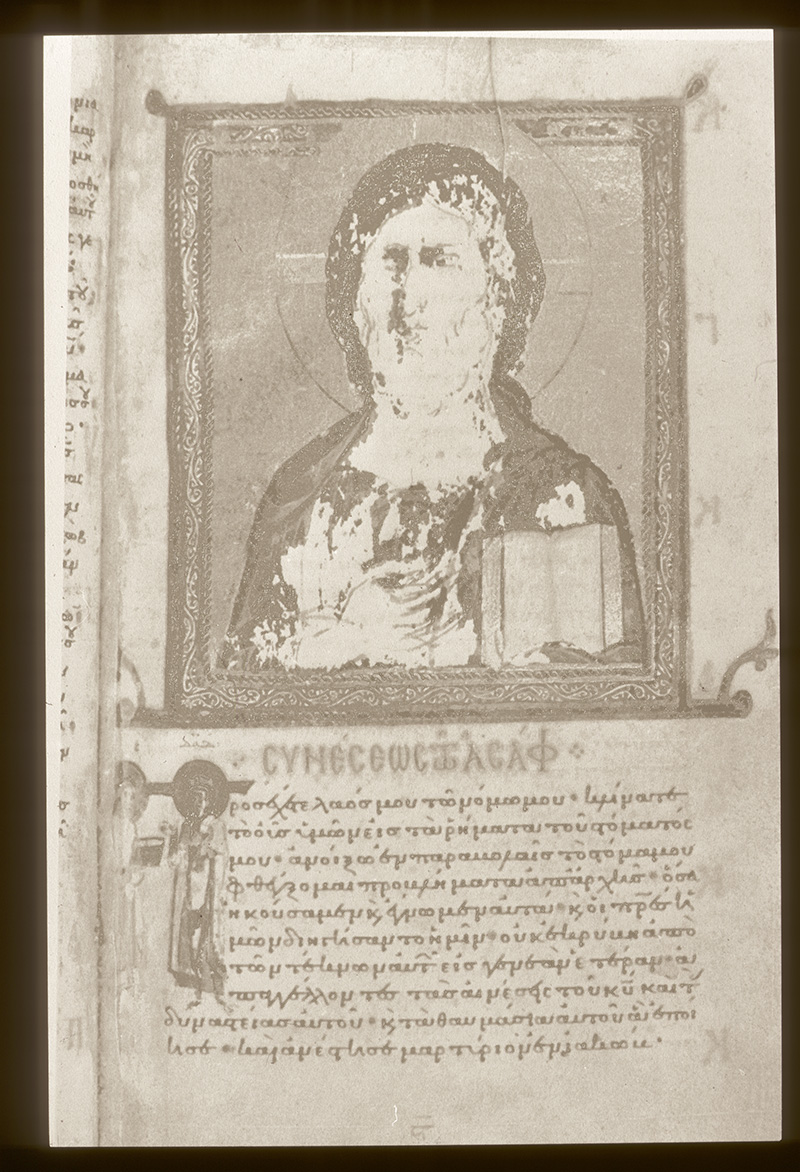 ΣΥΝΕΣΕΩΣ Τῷ ΑΣΑΦ
Προσέχετε λαός μου τῶ νόμω μου · κλίνατε
τὸ οὖς ὑμῶν εἰς τὰ ῥήματα τοῦ στόματός
μου · ἀνοίξω ἐν παραβολαῖς τὸ στόμα μου
φθέγξομαι προβλήματα ἀπαρχῆς · ὅσα
ἠκούσαμεν κ ἔγνωμεν αὐτὰ · κ οἱ πρές ἡ
μῶν διηγήσαντο ἡμῖν · οὐκ ἐκρύβη ἀπὸ
τῶν τέκνων αὐτ εἰς γενεὰν ἑτέραν · ἀ
παγγέλλοντες τὰς αἰνέσεις τοῦ κῦ καὶ τ
δυναστείας αὐτοῦ · κ τὰ θαυμάσια αὐτοῦ ἃ ἐποί
ησε · καὶ ἀνέστησε μαρτύριον ἐν ἰακώβ ·